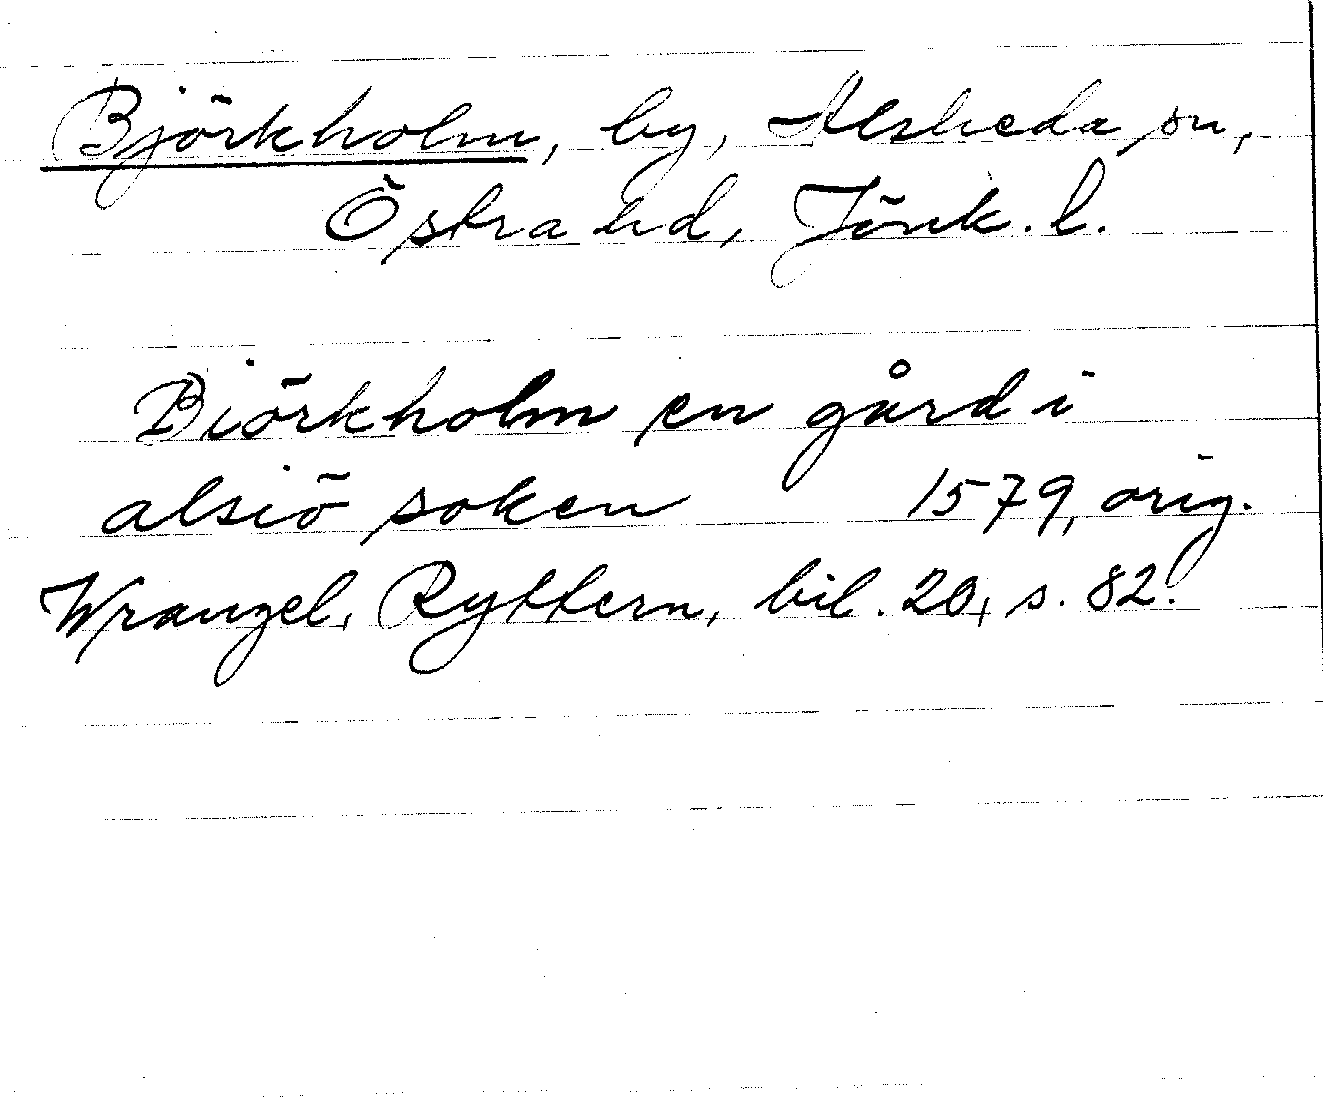 Björkholm, by, Alsheda sn,
Östra hd, Jönk. l.
Biörkholm en gård i
alsiö soken 1579, orig.
Wrangel, Ryttern, bil. 20, s. 82.